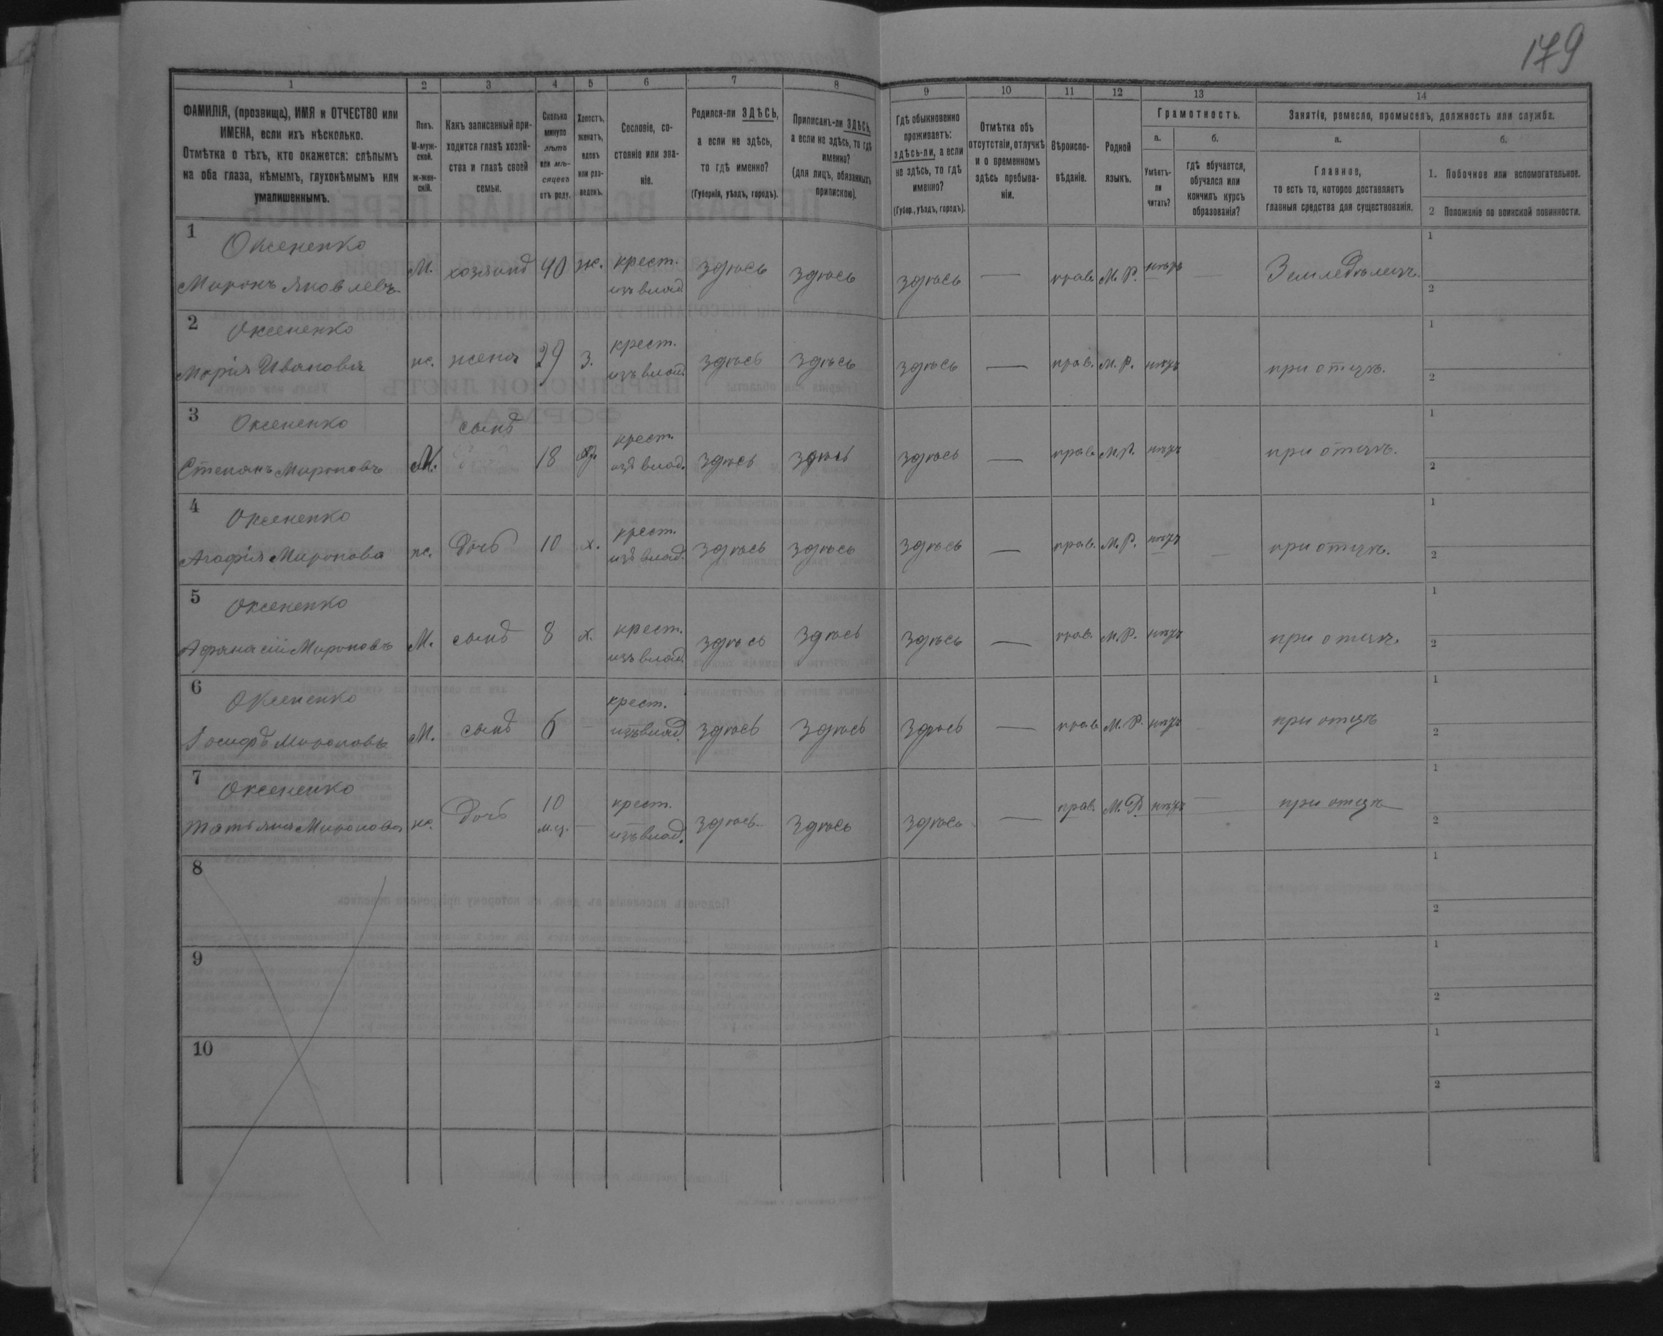 179
1 2 3 4 5 6 7 8 9 10 11 12 13 14
ФАМИЛІЯ, (прозвища), ИМЯ и ОТЧЕСТВО или
ИМЕНА, если ихъ нѣсколько.
Отмѣтка о тѣхъ, кто окажется: слѣпымъ
на оба глаза, нѣмымъ, глухонѣмымъ или
умалишеннымъ.
Полъ.
М-муж-
ской.
ж-жен-
скій.
Какъ записанный при-
ходится главѣ хозяй-
ства и главѣ своей
семьи.
Сколько
минуло
лѣтъ
или мѣ-
сяцевъ
отъ роду.
Холостъ,
женатъ,
вдовъ
или раз-
веденъ.
Сословіе, со-
стояніе или зва-
ніе.
Родился-ли ЗДѢСЬ,
а если не здѣсь,
то гдѣ именно?
(Губернія, уѣздъ, городъ).
Приписанъ-ли ЗДѢСЬ,
а если не здѣсь, то гдѣ
именно?
(для лицъ, обязанныхъ
припискою).
Гдѣ обыкновенно
проживаетъ:
здѣсь-ли, а если
не здѣсь, то гдѣ
именно?
(Губер., уѣздъ, городъ).
Отмѣтка объ
отсутствіи, отлучкѣ
и о временномъ
здѣсь пребыва-
ніи.
Вѣроиспо-
вѣданіе.
Родной
языкъ.
Грамотность.
а.
Умѣетъ-
ли
читать?
б.
гдѣ обучается,
обучался или
кончилъ курсъ
образованія?
Занятіе, ремесло, промыселъ, должность или служба.
а.
Главное,
то есть то, которое доставляетъ
главныя средства для существованія.
б.
1. Побочное или вспомогательное.
2 Положеніе по воинской повинности.
1 Оксененко
Миронъ Яковлевъ М. хозяинъ 40 ж. крест. изъ влад. здѣсь здѣсь здѣсь — прав. М. Р. нѣтъ — Земледѣлецъ 1 2
2 Оксененко
Марія Иванова ж. жена 29 з. крест. изъ влад. здѣсь здѣсь здѣсь — прав. М. Р. нѣтъ при отцѣ. 1 2
3 Оксененко
Степанъ Мироновъ М. сынъ 18 крест. изъ влад. здѣсь здѣсь здѣсь — прав. М. Р. нѣтъ при отцѣ. 1 2
4 Оксененко
Агафія Миронова ж. дочь 10 х. крест. изъ влад. здѣсь здѣсь здѣсь — прав. М. Р. нѣтъ при отцѣ. 1 2
5 Оксененко
Афанасій Мироновъ М. сынъ 8 х. крест. изъ влад. здѣсь здѣсь здѣсь — прав. М. Р. нѣтъ при отцѣ. 1 2
6 Оксененко
Іосифъ Мироновъ М. сынъ 6 — крест. изъ влад. здѣсь здѣсь здѣсь — прав. М. Р. нѣтъ при отцѣ 1 2
7 Оксененко
Татьяна Миронова ж. дочь 10 мц. — крест. изъ влад. здѣсь здѣсь здѣсь — прав. М. Р. нѣтъ — при отцѣ 1 2
8 1 2
9 1 2
10 1 2